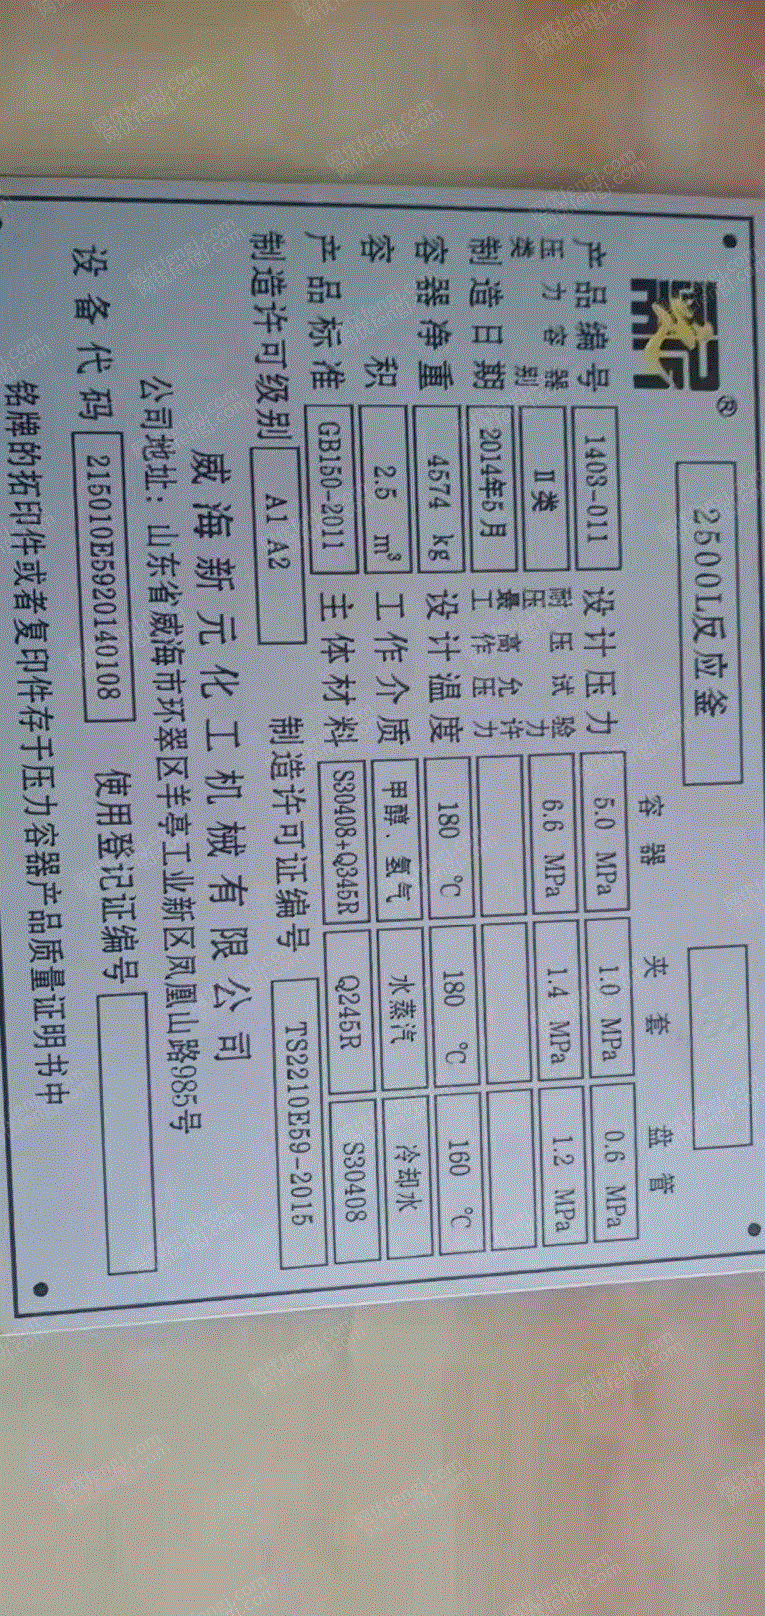 ®
2500L反应釜
容器 夹套 盘管
产品编号 1403-011 设计压力 5.0 MPa 1.0 MPa 0.6 MPa
压力容器类别 Ⅱ类 耐压试验压力 6.6 MPa 1.4 MPa 1.2 MPa
制造日期 2014年5月 最高允许工作压力
容器净重 4574 kg 设计温度 180 ℃ 180 ℃ 160 ℃
容积 2.5 m³ 工作介质 甲醇、氢气 水蒸汽 冷却水
产品标准 GB150-2011 主体材料 S30408+Q345R Q245R S30408
制造许可级别 A1 A2 制造许可证编号 TS2210E59-2015
威海新元化工机械有限公司
公司地址：山东省威海市环翠区羊亭工业新区凤凰山路985号
设备代码 215010E5920140108 使用登记证编号
铭牌的拓印件或者复印件存于压力容器产品质量证明书中